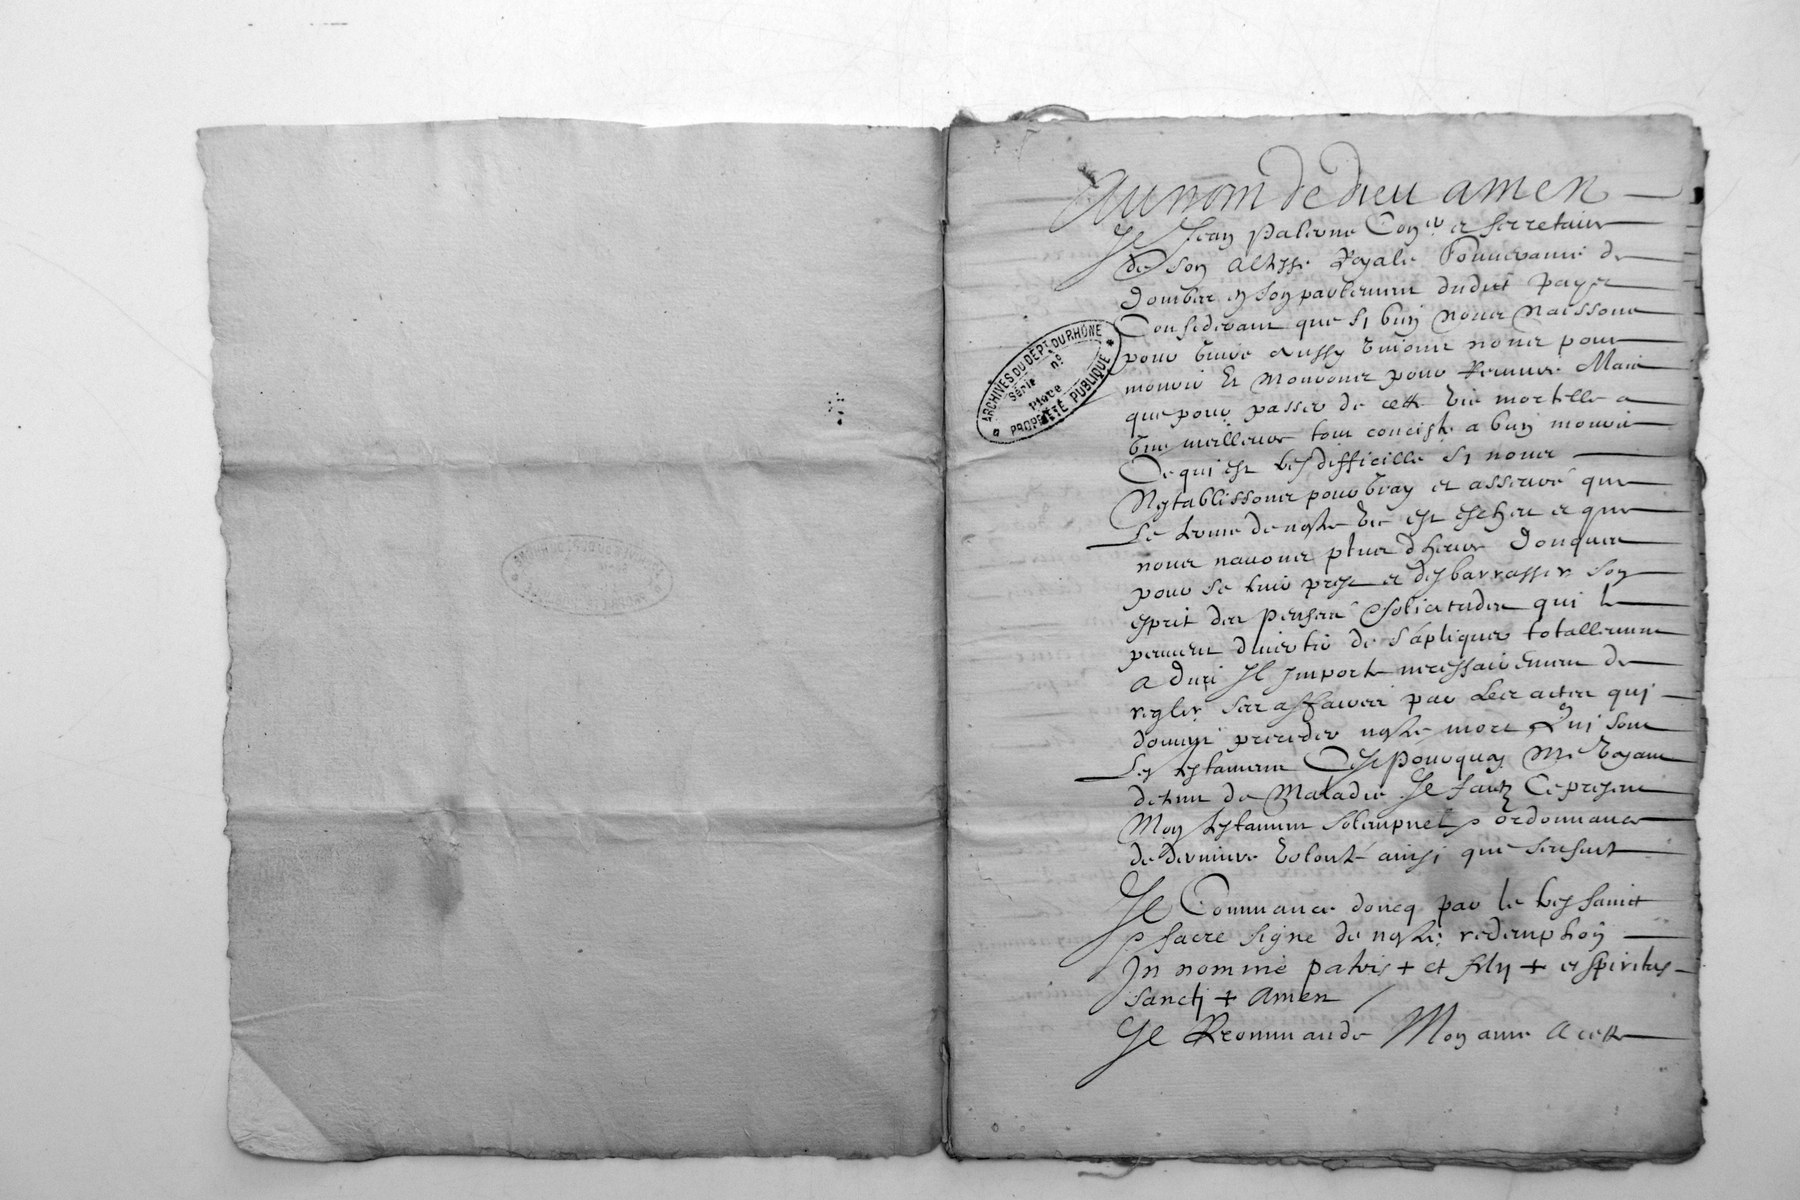 ARCHIVES DU DEPT DU RHÔNE
Série nº
Pièce
PROPRIÉTÉ PUBLIQUE
Au nom de dieu amen
Je Jean Palerne Con.er et secretaire
de son altesse Royale souveraine de
Dombes en son parlement dudict pays
Considerant que si bien nous naissons
pour vivre aussy vivons nous pour
mourir et mourons pour revivre Mais
que pour passer de cette vie mortelle a
une meilleure tout conciste a bien mourir
Ce qui est tres difficille si nous
N'establissons pour vray et asseuré que
Le terme de nostre vie est escheu et que
nous n'avons plus d'heure Donques
pour se tenir prest et desbarrasser son
esprit des pensees & solicitudes qui le
peuvent divertir de s'apliquer totallement
a dieu Il Importe necessairement de
regler ses affaires par les actes qui
doivent preceder nostre mort Qui sont
Les testamens C'est pourquoy Me voyant
detenu de Maladie Je faictz Ce present
Mon testament solempnel & ordonnance
de derniere volonté ainsi que s'ensuit
Je Commance doncq par le tres sainct
& sacre signe de nostre redemption
In nomine patris + et filij + et spiritus
sancti + Amen
Je Recommande Mon ame a cette